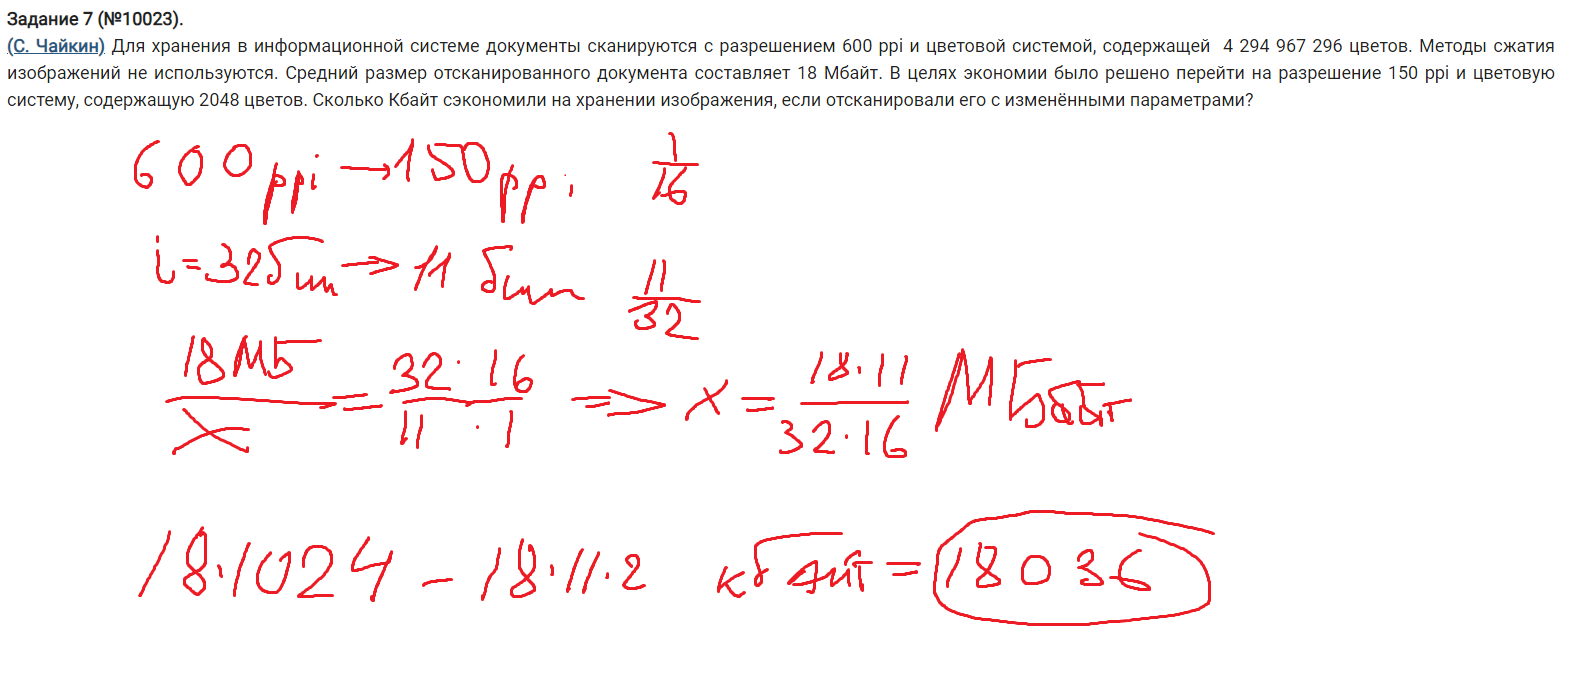 Задание 7 (№10023).
(С. Чайкин) Для хранения в информационной системе документы сканируются с разрешением 600 ppi и цветовой системой, содержащей 4 294 967 296 цветов. Методы сжатия
изображений не используются. Средний размер отсканированного документа составляет 18 Мбайт. В целях экономии было решено перейти на разрешение 150 ppi и цветовую
систему, содержащую 2048 цветов. Сколько Кбайт сэкономили на хранении изображения, если отсканировали его с изменёнными параметрами?
600 ppi → 150 ppi 1/16
i = 32 бит → 11 бит 11/32
18 МБ / x = 32 · 16 / 11 · 1 ⇒ x = 18 · 11 / 32 · 16 МБайт
18 · 1024 - 18 · 11 · 2 кбайт = 18036